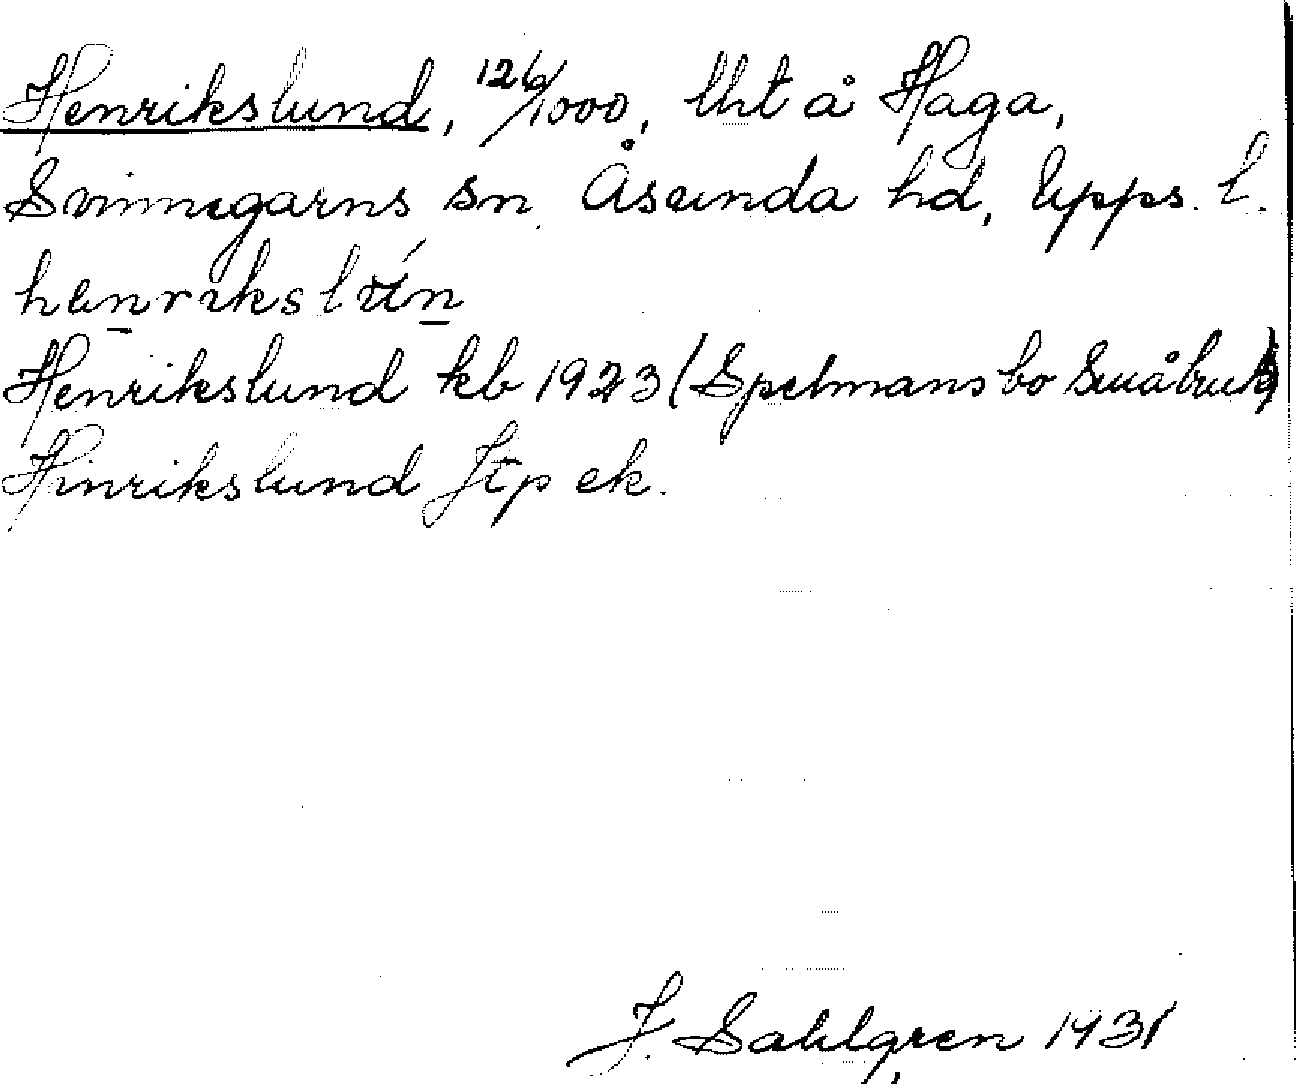 Henrikslund, 126/1000, lht å Haga,
Svinnegarns sn. Åsunda hd, Upps. l.
henrikslún
Henrikslund kb 1923 (Spelmansbo Småbruk)
Hinrikslund Jtp ek.
J. Sahlgren 1931